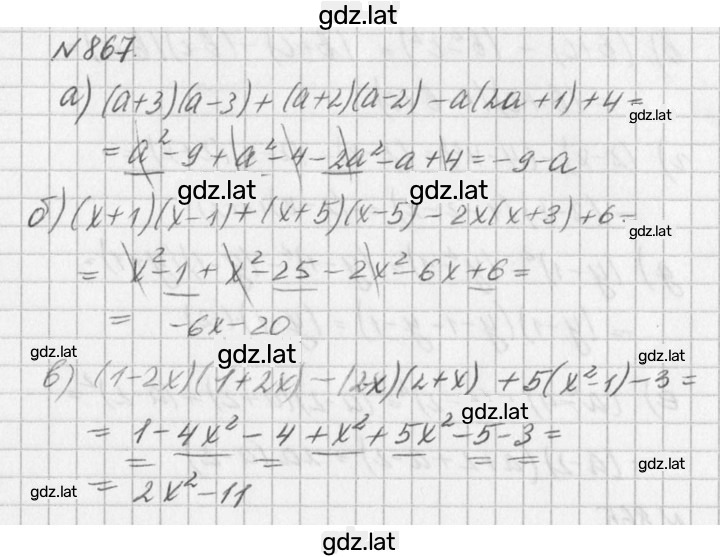 gdz.lat
№867.
а) (a+3)(a-3) + (a+2)(a-2) - a(2a+1) + 4 =
gdz.lat
= a² - 9 + a² - 4 - 2a² - a + 4 = -9 - a
gdz.lat gdz.lat
б) (x+1)(x-1) + (x+5)(x-5) - 2x(x+3) + 6 =
gdz.lat
= x² - 1 + x² - 25 - 2x² - 6x + 6 =
= -6x - 20
gdz.lat gdz.lat gdz.lat
в) (1-2x)(1+2x) - (2-x)(2+x) + 5(x²-1) - 3 =
gdz.lat
= 1 - 4x² - 4 + x² + 5x² - 5 - 3 =
gdz.lat
= 2x² - 11
gdz.lat
gdz.lat